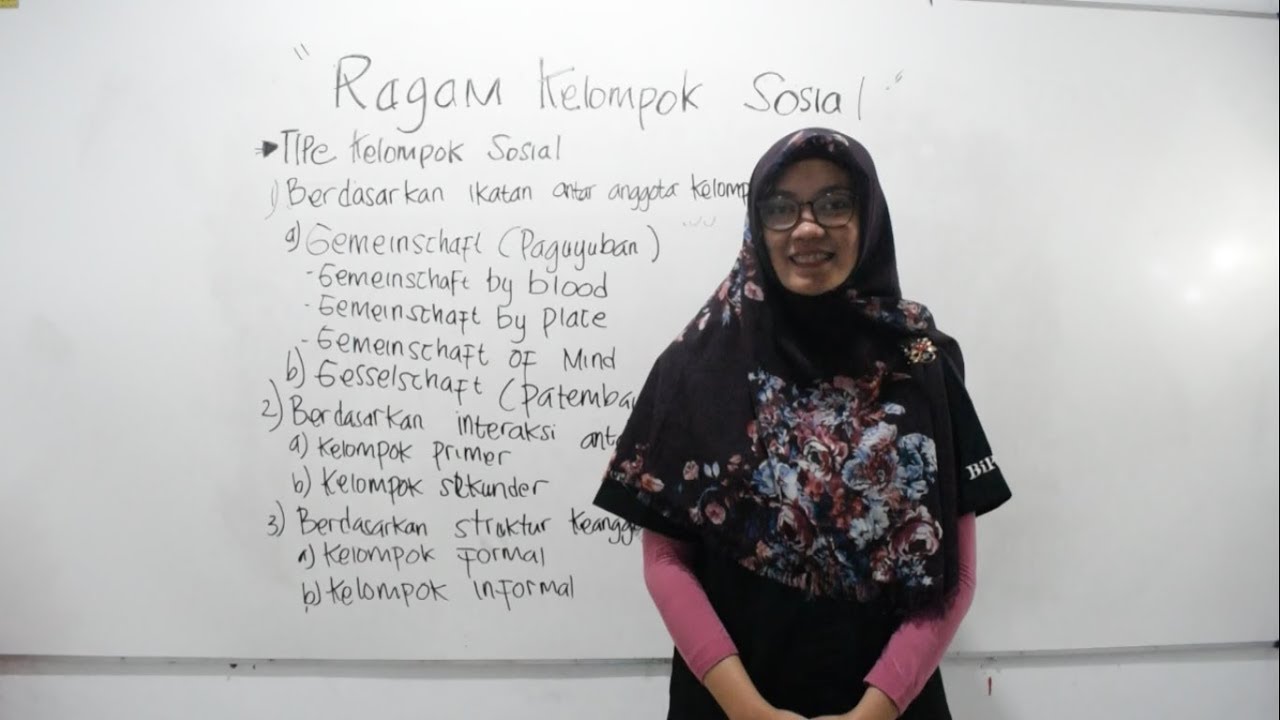 "Ragam Kelompok Sosial"
Tipe Kelompok Sosial
1) Berdasarkan ikatan antar anggota kelomp
a) Gemeinschaft (Paguyuban)
- Gemeinschaft by blood
- Gemeinschaft by place
- Gemeinschaft of Mind
b) Gesselschaft (Patemba
2) Berdasarkan interaksi ant
a) Kelompok primer
b) Kelompok sekunder
3) Berdasarkan struktur keangg
a) Kelompok formal
b) Kelompok informal